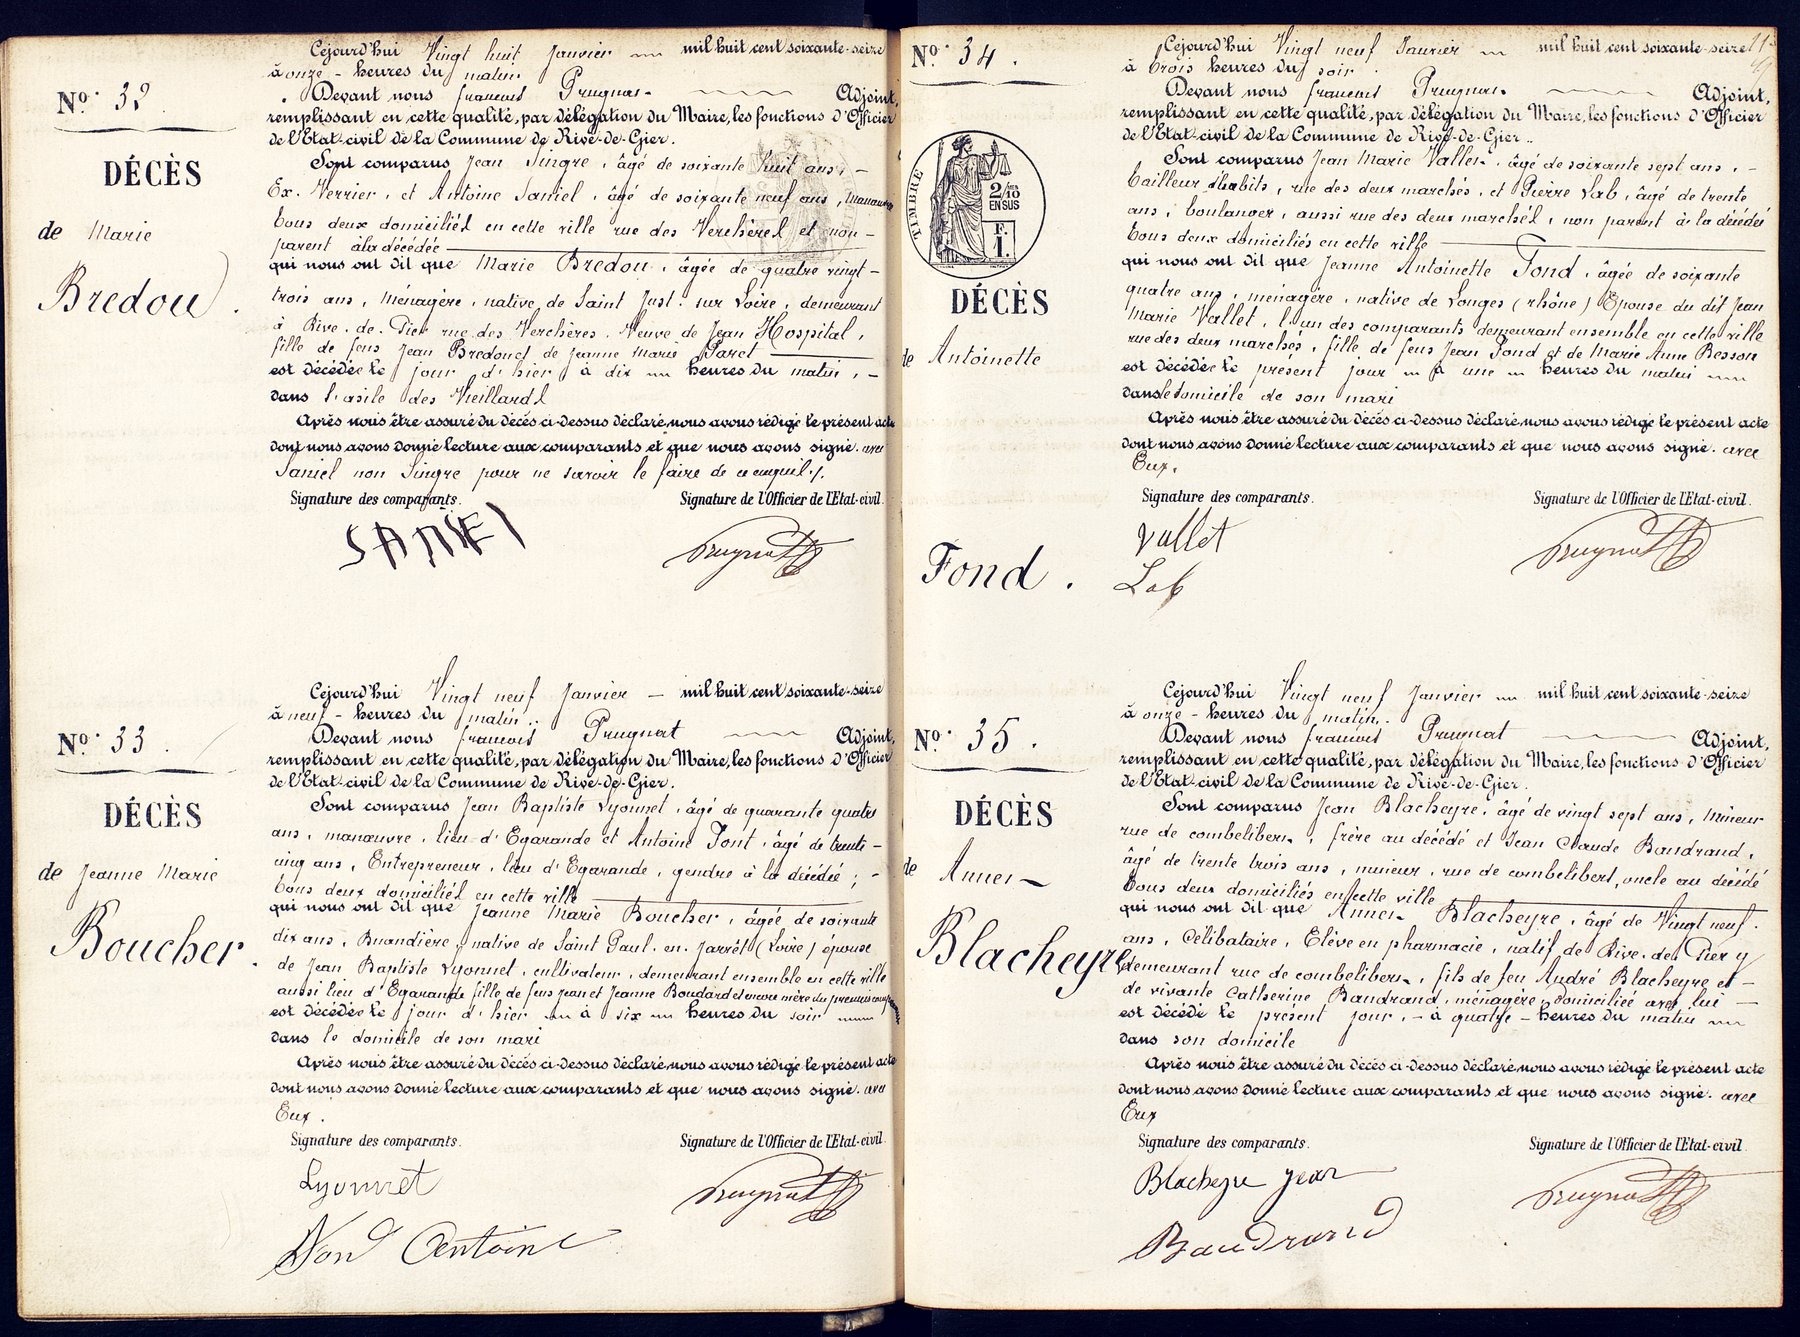 Nº. 32
DÉCÈS
de Marie
Bredou.
Cejourd'hui Vingt huit Janvier mil huit cent soixante-seize
à onze - heures du matin
Devant nous françois Prugnat Adjoint,
remplissant en cette qualité, par délégation du Maire, les fonctions d'Officier
de l'Etat-civil de la Commune de Rive-de-Gier.
Sont comparus Jean Singre, âgé de soixante huit ans, -
Ex. Verrier, et Antoine Saniel, âgé de soixante neuf ans, manœuvre
tous deux domiciliés en cette ville rue des Verchères et non -
parent à la décédée
qui nous ont dit que Marie Bredou, âgée de quatre vingt -
trois ans, Ménagère, native de Saint Just. sur Loire, demeurant
à Rive. de. Gier rue des Verchères. Veuve de Jean Hospital,
fille de feus Jean Bredou et de Jeanne Marie Paret
est décédée le jour d'hier à dix heures du matin, -
dans l'asile des Vieillards
Après nous être assuré du décès ci-dessus déclaré, nous avons rédigé le présent acte
dont nous avons donné lecture aux comparants et que nous avons signé. avec
Saniel non Singre pour ne savoir le faire de ce enquil /.
Signature des comparants. Signature de l'Officier de l'Etat-civil.
SANIEL Prugnat
Nº. 33.
DÉCÈS
de Jeanne Marie
Boucher.
Cejourd'hui Vingt neuf Janvier - mil huit cent soixante-seize
à neuf - heures du matin..
Devant nous françois Prugnat Adjoint,
remplissant en cette qualité, par délégation du Maire, les fonctions d'Officier
de l'Etat-civil de la Commune de Rive-de-Gier.
Sont comparus Jean Baptiste Lyonnet, âgé de quarante quatre
ans, manœuvre, lieu d'Egarande et Antoine Font, âgé de trente -
cinq ans, Entrepreneur, lieu d'Egarande, gendre à la décédée; -
tous deux domiciliés en cette ville
qui nous ont dit que Jeanne Marie Boucher, âgée de soixante
dix ans, Buandière, native de Saint Paul. en. Jarrêt (Loire) épouse
de Jean Baptiste Lyonnet, cultivateur, demeurant ensemble en cette ville
aussi lieu d'Egarande fille de feus Jean et Jeanne Boudard et encore mère du premier comparant
est décédée le jour d'hier à six heures du soir
dans le domicile de son mari
Après nous être assuré du décès ci-dessus déclaré, nous avons rédigé le présent acte
dont nous avons donné lecture aux comparants et que nous avons signé. avec
Eux.
Signature des comparants. Signature de l'Officier de l'Etat-civil.
Lyonnet Prugnat
Fond Antoine
Nº. 34.
TIMBRE
2/10 EN SUS
F. 1.
DÉCÈS
de Antoinette
Fond.
Cejourd'hui Vingt neuf Janvier mil huit cent soixante-seize
à trois heures du soir.
Devant nous françois Prugnat Adjoint,
remplissant en cette qualité, par délégation du Maire, les fonctions d'Officier
de l'Etat-civil de la Commune de Rive-de-Gier..
Sont comparus Jean Marie Vallet, âgé de soixante sept ans, -
tailleur d'habits, rue des deux marchés, et Pierre Lab, âgé de trente
ans, boulanger, aussi rue des deux marchés, non parent à la décédée
tous deux domiciliés en cette ville
qui nous ont dit que Jeanne Antoinette Fond, âgée de soixante
quatre ans, ménagère, native de Longes (rhône) Epouse du dit Jean
Marie Vallet, l'un des comparants demeurant ensemble en cette ville
rue des deux marchés, fille de feus Jean Fond et de Marie Anne Besson
est décédée le présent jour à une heures du matin
dans le domicile de son mari
Après nous être assuré du décès ci-dessus déclaré, nous avons rédigé le présent acte
dont nous avons donné lecture aux comparants et que nous avons signé. avec
Eux.
Signature des comparants. Signature de l'Officier de l'Etat-civil.
Vallet Prugnat
Lab
Nº. 35.
DÉCÈS
de Annet
Blacheyre
Cejourd'hui Vingt neuf Janvier mil huit cent soixante-seize
à onze - heures du matin.
Devant nous françois Prugnat Adjoint,
remplissant en cette qualité, par délégation du Maire, les fonctions d'Officier
de l'Etat-civil de la Commune de Rive-de-Gier.
Sont comparus Jean Blacheyre, âgé de vingt sept ans, Mineur
rue de combelibert, frère au décédé et Jean Claude Baudrand,
âgé de trente trois ans, mineur, rue de combelibert, oncle au décédé
tous deux domiciliés en cette ville
qui nous ont dit que Annet Blacheyre, âgé de Vingt neuf.
ans, Célibataire, Elève en pharmacie, natif de Rive. de. Gier y
demeurant rue de combelibert, fils de feu André Blacheyre et -
de vivante Catherine Baudrand, ménagère, domiciliée avec lui -
est décédé le présent jour, - à quatre - heures du matin
dans son domicile
Après nous être assuré du décès ci-dessus déclaré, nous avons rédigé le présent acte
dont nous avons donné lecture aux comparants et que nous avons signé. avec
Eux
Signature des comparants. Signature de l'Officier de l'Etat-civil.
Blacheyre Jean Prugnat
Baudrand